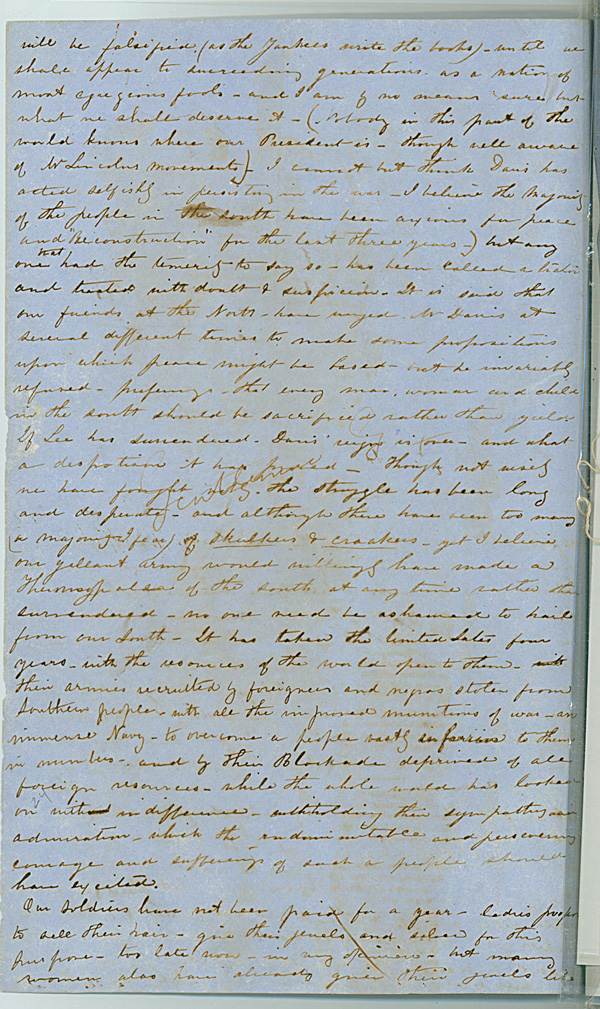 will be falsified (as the Yankees write the books) - until we
shall appear to succeeding generations as a nation of
most egregious fools - and I am by no means sure but
what we shall deserve it - (Nobody in this part of the
world knows where our President is - though well aware
of Mr Lincolns movements) - I cannot but think Davis has
acted selfishly in persisting in the war - I believe the majority
of the people in the south have been anxious for peace
and "Reconstruction" for the last three years -) but any
one that had the temerity to say so - has been called a traitor
and treated with doubt & suspicion - It is said that
our friends at the North have urged Mr Davis at
several different times to make some propositions
upon which peace might be based - but he invariably
refused - preferring - that every man, woman and child
in the south should be sacrificed rather than yield
If Lee has surrendered - Davis' reign is over - and what
a despotism it has proved - Though not wisely
we have fought well - The struggle has been long
and desperate - and although there have been too many
(a majority I fear) of skulkers & croakers - yet I believe
our gallant army would willingly have made a
Thermopylae of the south at any time rather than
surrendered - no one need be ashamed to hail
from our South - It has taken the United States four
years - with the resources of the world open to them - with
their armies recruited by foreigners and negros stolen from
Southern people - with all the improved munitions of war - an
immense Navy - to overcome a people vastly inferior to them
in numbers - and by their Blockade deprived of all
foreign resources - while the whole world has looked
on with indifference - withholding their sympathies and
admiration - which the indomitable and persevering
courage and sufferings of such a people should
have excited.
Our soldiers have not been paid for a year - ladies propose
to sell their hair - give their jewels and silver for this
purpose - too late now - in my opinion - but many
women alas have already given their jewels like